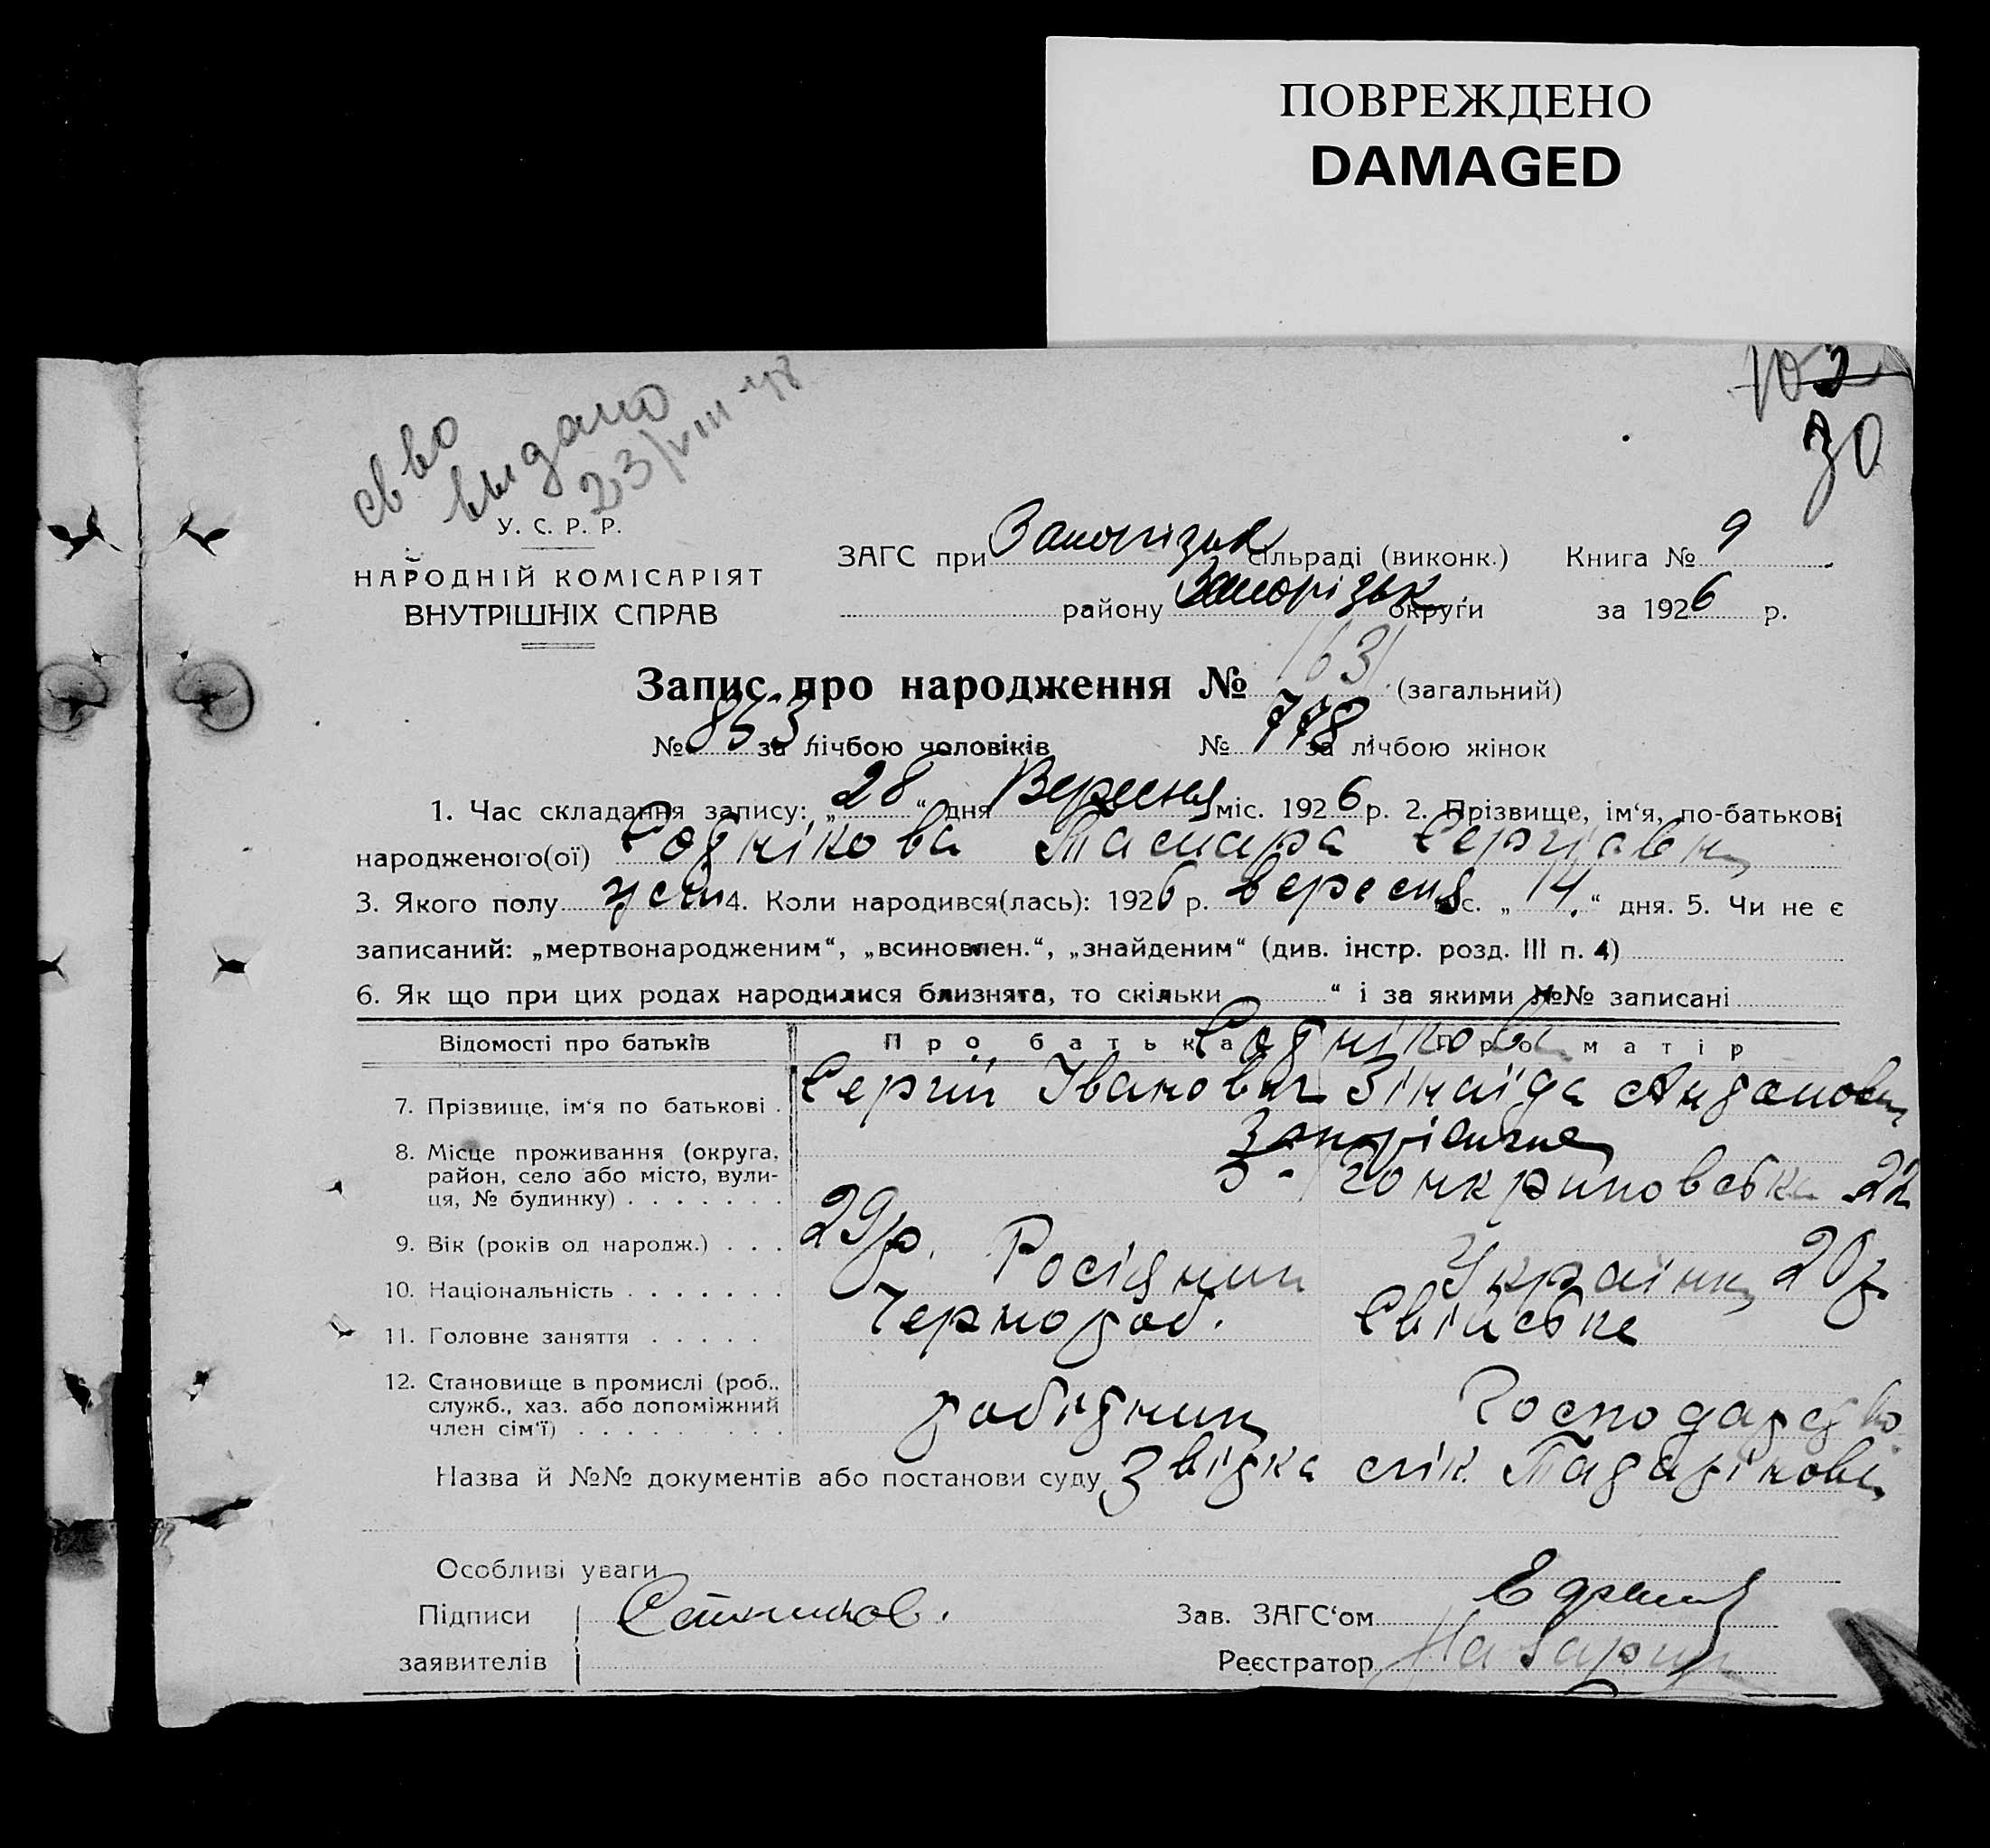 ПОВРЕЖДЕНО
DAMAGED
103
30
св во
выдано
23/VIII-48
У. С. Р. Р.
НАРОДНІЙ КОМІСАРІЯТ
ВНУТРІШНІХ СПРАВ
ЗАГС при Запорізьк сільраді (виконк.) Книга № 9
району Запорізьк округи за 1926 р.
Запис про народження № 1631 (загальний)
№ 853 за лічбою чоловіків № 778 за лічбою жінок
1. Час складання запису: „28“ дня Вересня міс. 1926 р. 2. Прізвище, ім‘я, по-батькові
народженого(ої) Тамара Сергіовна
3. Якого полу жін 4. Коли народився(лась): 1926 р. вересня с. „14.“ дня. 5. Чи не є
записаний: „мертвонародженим“, „всиновлен.“, „знайденим“ (див. інстр. розд. III п. 4)
6. Як що при цих родах народилися близнята, то скільки “ і за якими №№ записані
Відомості про батьків Про батька Про матір
7. Прізвище, ім‘я по батькові . Сергій Іванович Зінаїда
8. Місце проживання (округа, район, село або місто, вулиця, № будинку) . . . . . . . 22
9. Вік (років од народж.) . . . 29 р. 20 р
10. Національність . . . . . . . Росіянин Українка
11. Головне заняття . . . . . Чорнороб. Свійське
12. Становище в промислі (роб., служб., хаз. або допоміжний член сім‘ї) . . . . . . . . . робітник Господарство
Назва й №№ документів або постанови суду Звідка лік.
Особливі уваги
Підписи
заявителів
Зав. ЗАГС‘ом
Реєстратор